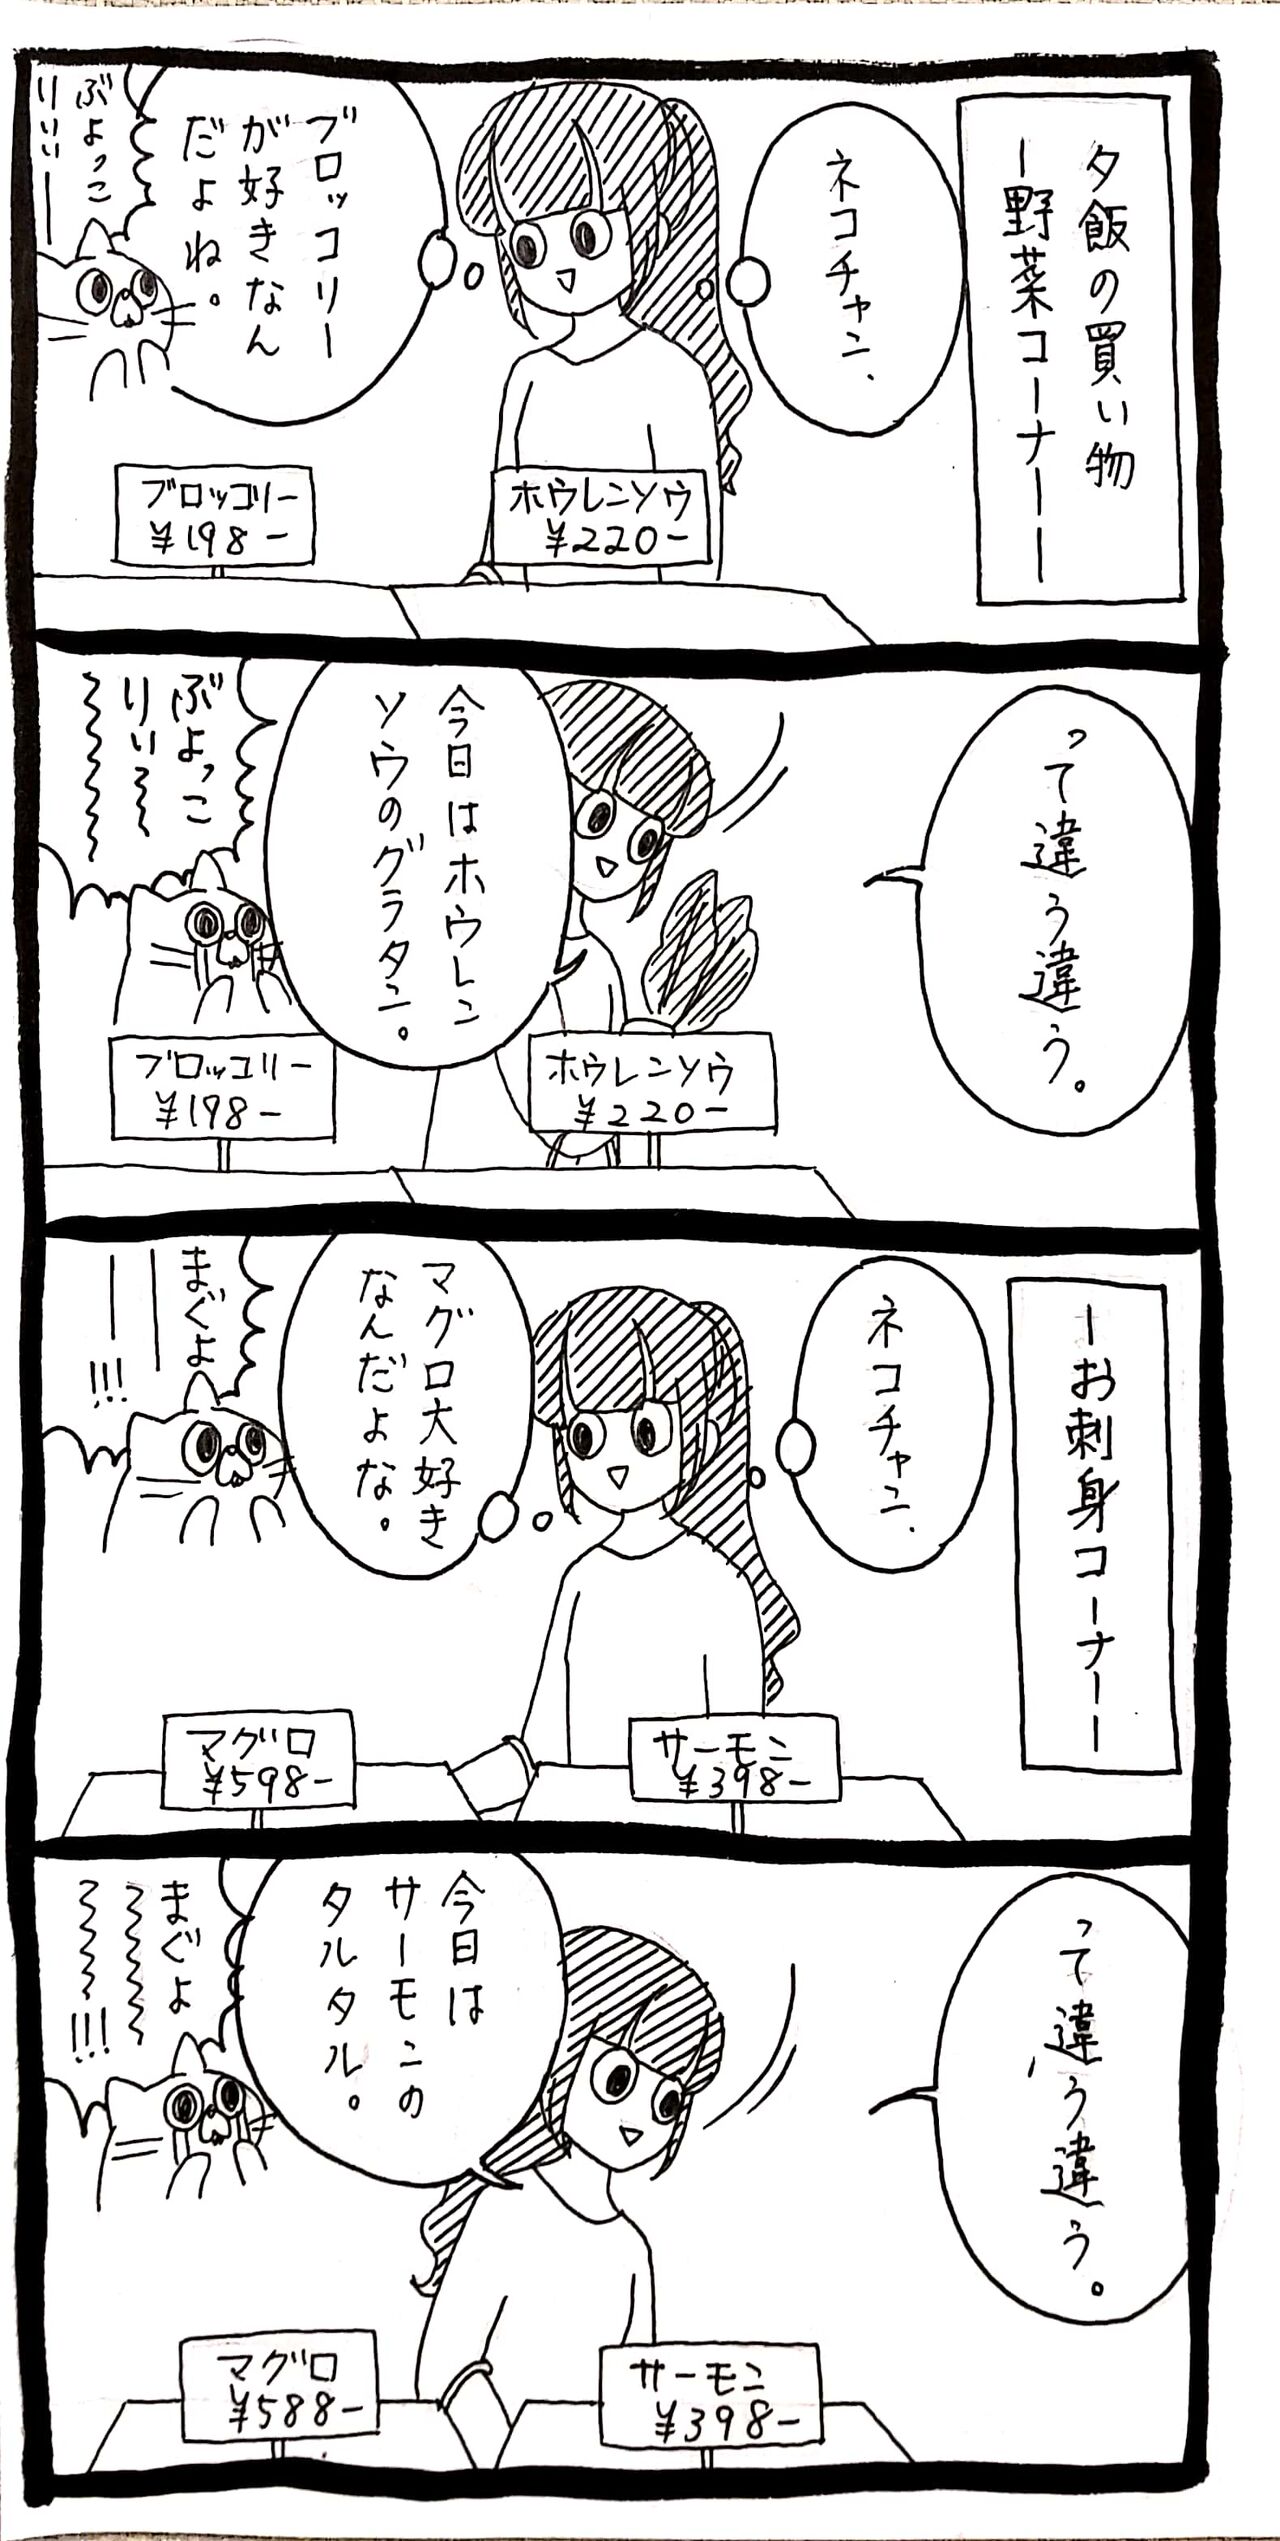 夕飯の買い物
ー野菜コーナーー
ネコチャン、
ブロッコリー
が好きなん
だよね。
ぶよっこ
りぃぃー
ブロッコリー
¥198-
ホウレンソウ
¥220-
って違う違う。
今日はホウレン
ソウのグラタン。
ぶよっこ
りぃ〜
〜〜〜
ブロッコリー
¥198-
ホウレンソウ
¥220-
ーお刺身コーナーー
ネコチャン、
マグロ大好き
なんだよな。
まぐよ
ーー!!!
マグロ
¥598-
サーモン
¥398-
って違う違う。
今日は
サーモンの
タルタル。
まぐよ
〜〜〜
〜〜〜!!!
マグロ
¥588-
サーモン
¥398-